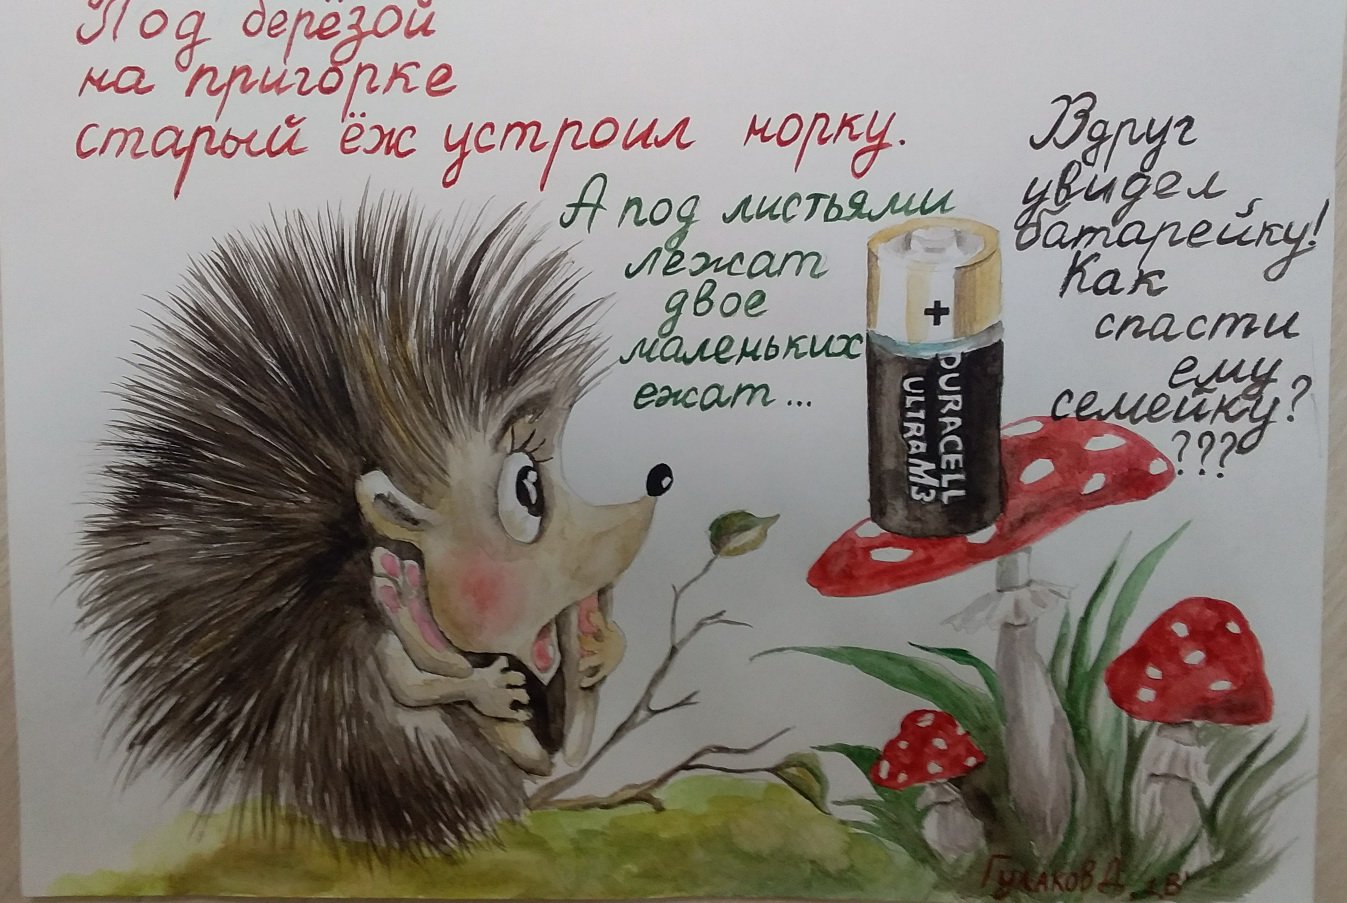 Под берёзой
на пригорке
старый ёж устроил норку.
А под листьями
лежат
двое
маленьких
ежат...
Вдруг
увидел
батарейку!
Как
спасти
ему
семейку?
???
+
DURACELL
ULTRA M3
Гулаков Д. 1В"